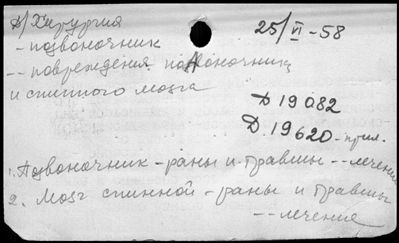 А/Хирургия
25/VI-58
- позвоночник
-- повреждения позвоночника
и спинного мозга
Д 19082
Д. 19620 - прил.
1. Позвоночник - раны и травмы -- лечение
2. Мозг спинной - раны и травмы
-- лечение